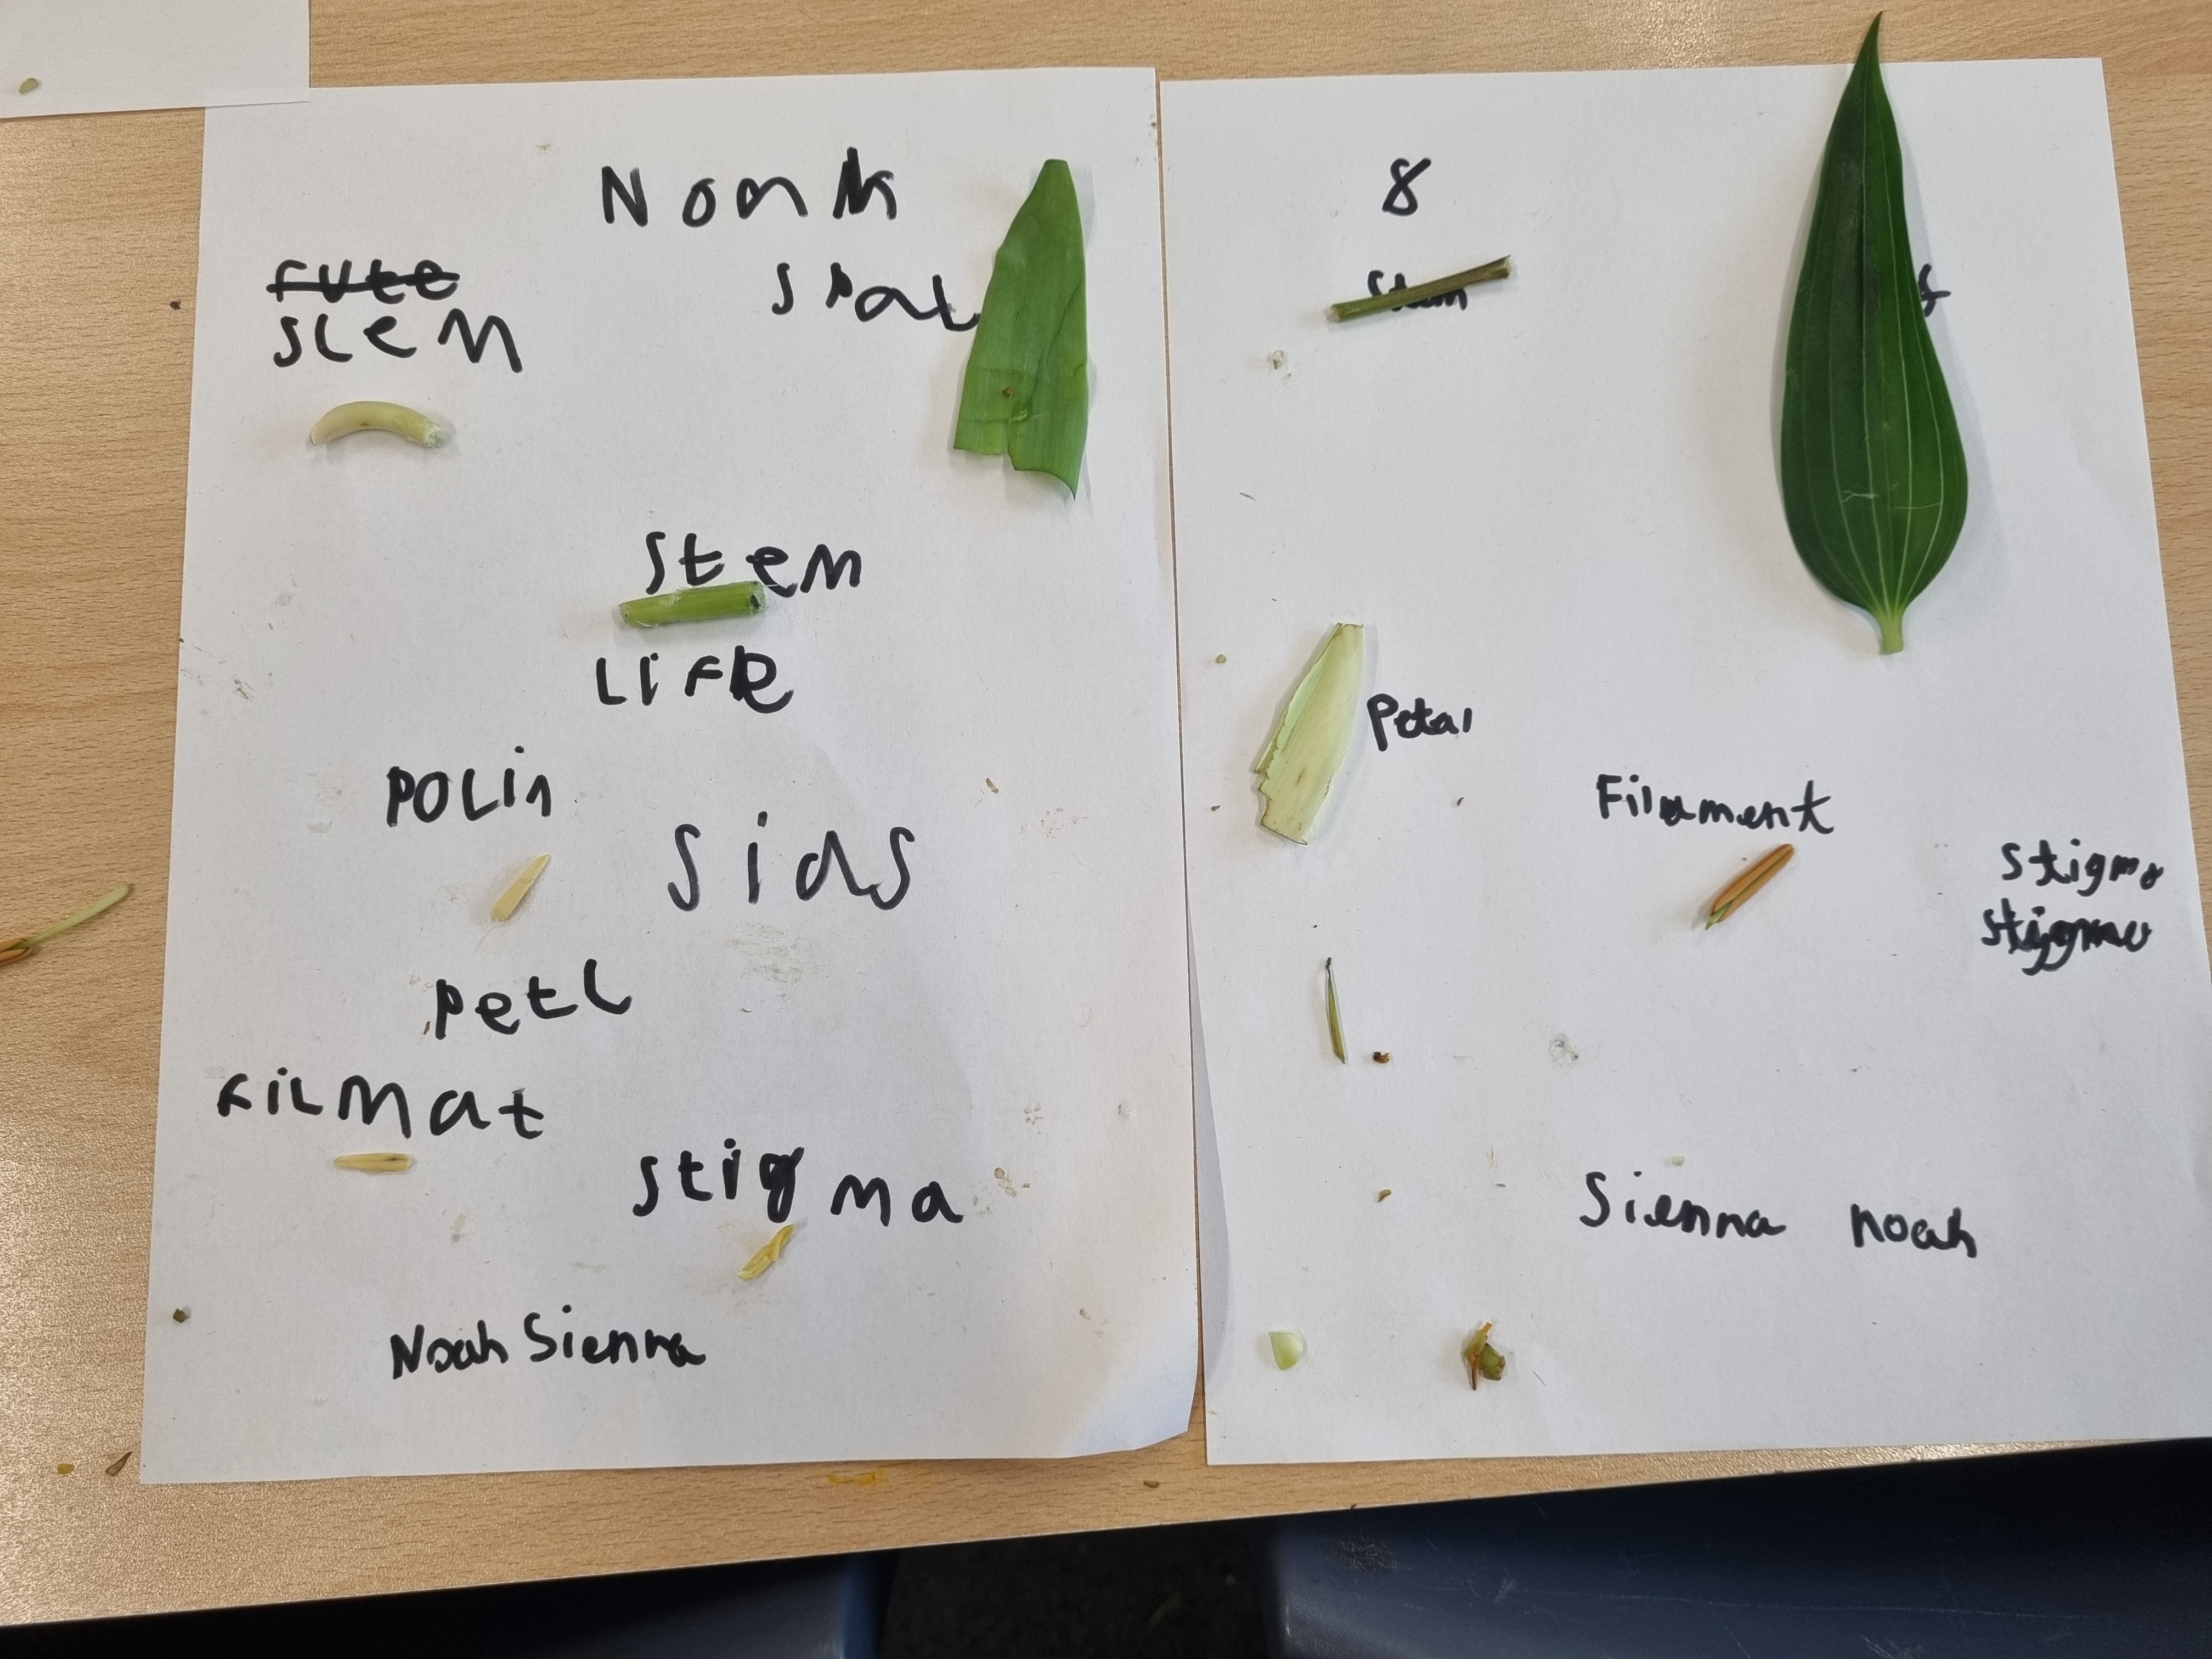 Noah
spal
futt
stem
stem
life
polin
sids
petl
filmat
stigma
Noah Sienna
8
Stem
Petal
Filament
Stigma
Stigma
Sienna noah